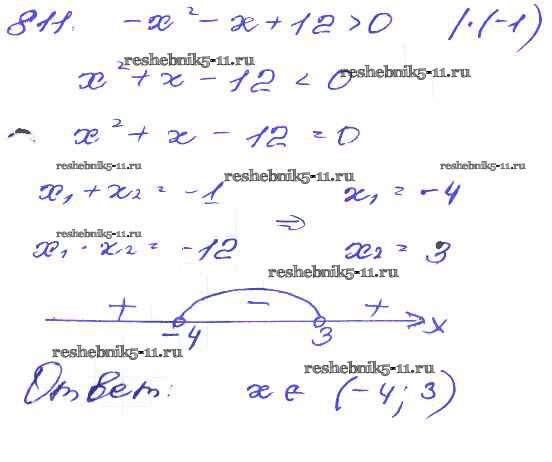 811. -x² - x + 12 > 0 | · (-1)
reshebnik5-11.ru
x² + x - 12 < 0 reshebnik5-11.ru
x² + x - 12 = 0
reshebnik5-11.ru reshebnik5-11.ru reshebnik5-11.ru
x₁ + x₂ = -1 x₁ = -4
reshebnik5-11.ru ⇒
x₁ · x₂ = -12 x₂ = 3
reshebnik5-11.ru
+ - +
-4 3 x
reshebnik5-11.ru reshebnik5-11.ru
Ответ: x ∈ (-4; 3)